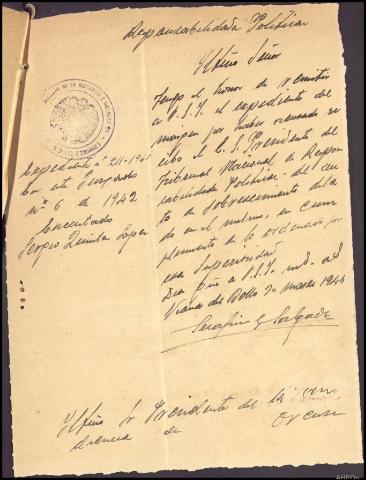 Responsabilidades Politicas
Iltmo Señor
Tengo el honor de remitir
a V.S.I. el expediente del
margen por haber acusado re
cibo el E.S. Presidente del
Tribunal Nacional de Respon
sabilidades Politicas del au
to de sobreseimiento dicta
do en el mismo, en cum
plimiento de lo ordenado por
esa Superioridad
Dios gûe a V.S.I. m.
Viana del Bollo 30 marzo 1944
Serafin G Salgado
Expediente nº 211-1941
En este Juzgado
nº 6 de 1942
Encartado
Sergio Quintas Lopez
Iltmo Sr Presidente de la
diencia de Orense
AHPOu